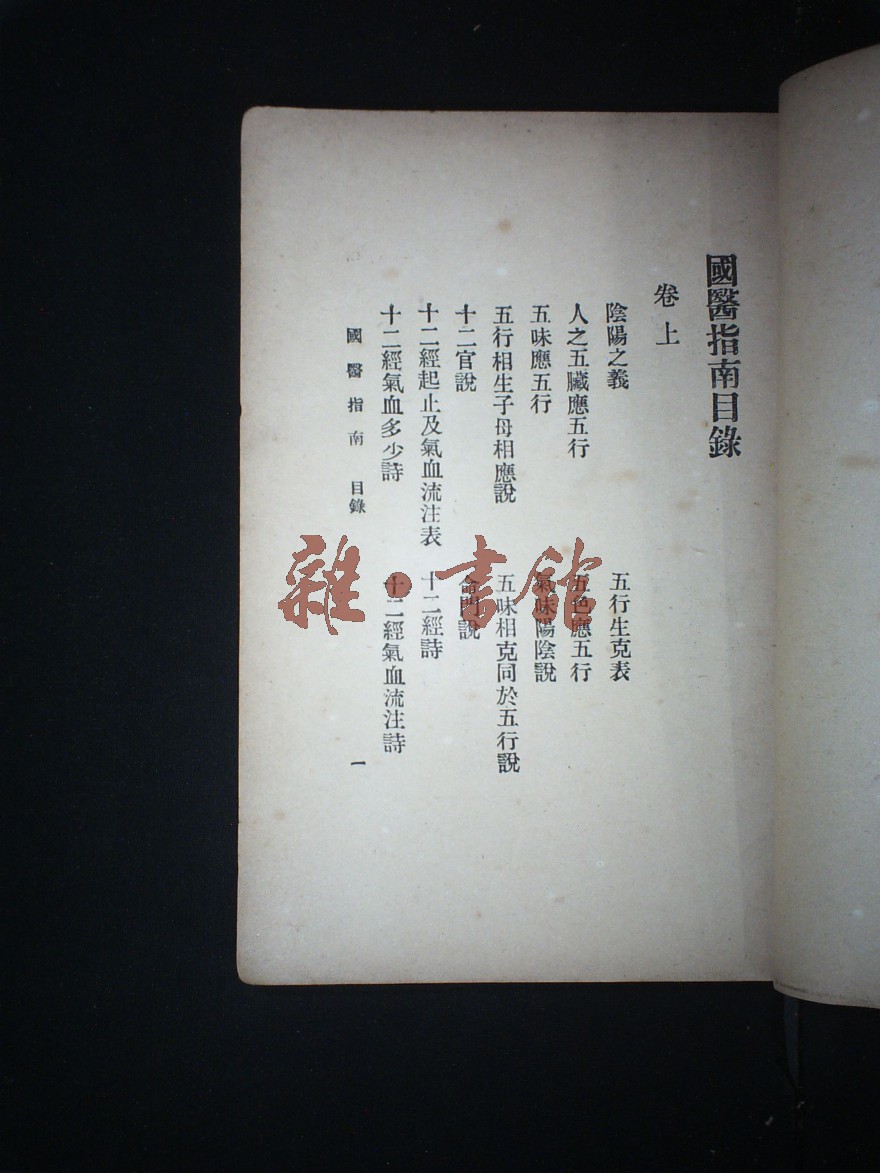 國醫指南目錄
卷上
陰陽之義
五行生克表
人之五臟應五行
五色應五行
五味應五行
氣味陽陰說
五行相生子母相應說
五味相克同於五行說
十二官說
命門說
十二經起止及氣血流注表
十二經詩
十二經氣血多少詩
十二經氣血流注詩
國醫指南 目錄
一
雜·書館